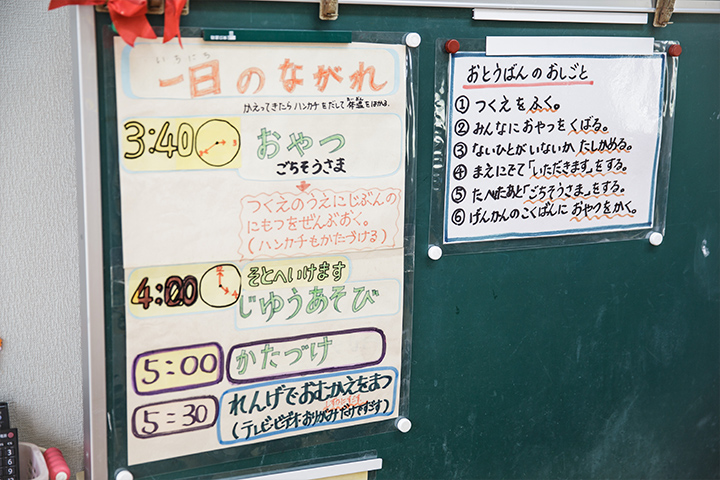 いちにち
一日のながれ
かえってきたら ハンカチをだして
3:40
おやつ
ごちそうさま
つくえのうえにじぶんの
にもつをぜんぶおく。
(ハンカチもかたづける)
4:00
そとへいけます
じゆうあそび
5:00
かたづけ
5:30
れんげでおむかえをまつ
(テレビ・ビデオ・おりがみだけですごす)
おとうばんのおしごと
① つくえをふく。
② みんなにおやつをくばる。
③ ないひとがいないか たしかめる。
④ まえにでて「いただきます」をする。
⑤ たべたあと「ごちそうさま」をする。
⑥ げんかんのこくばんに おやつをかく。